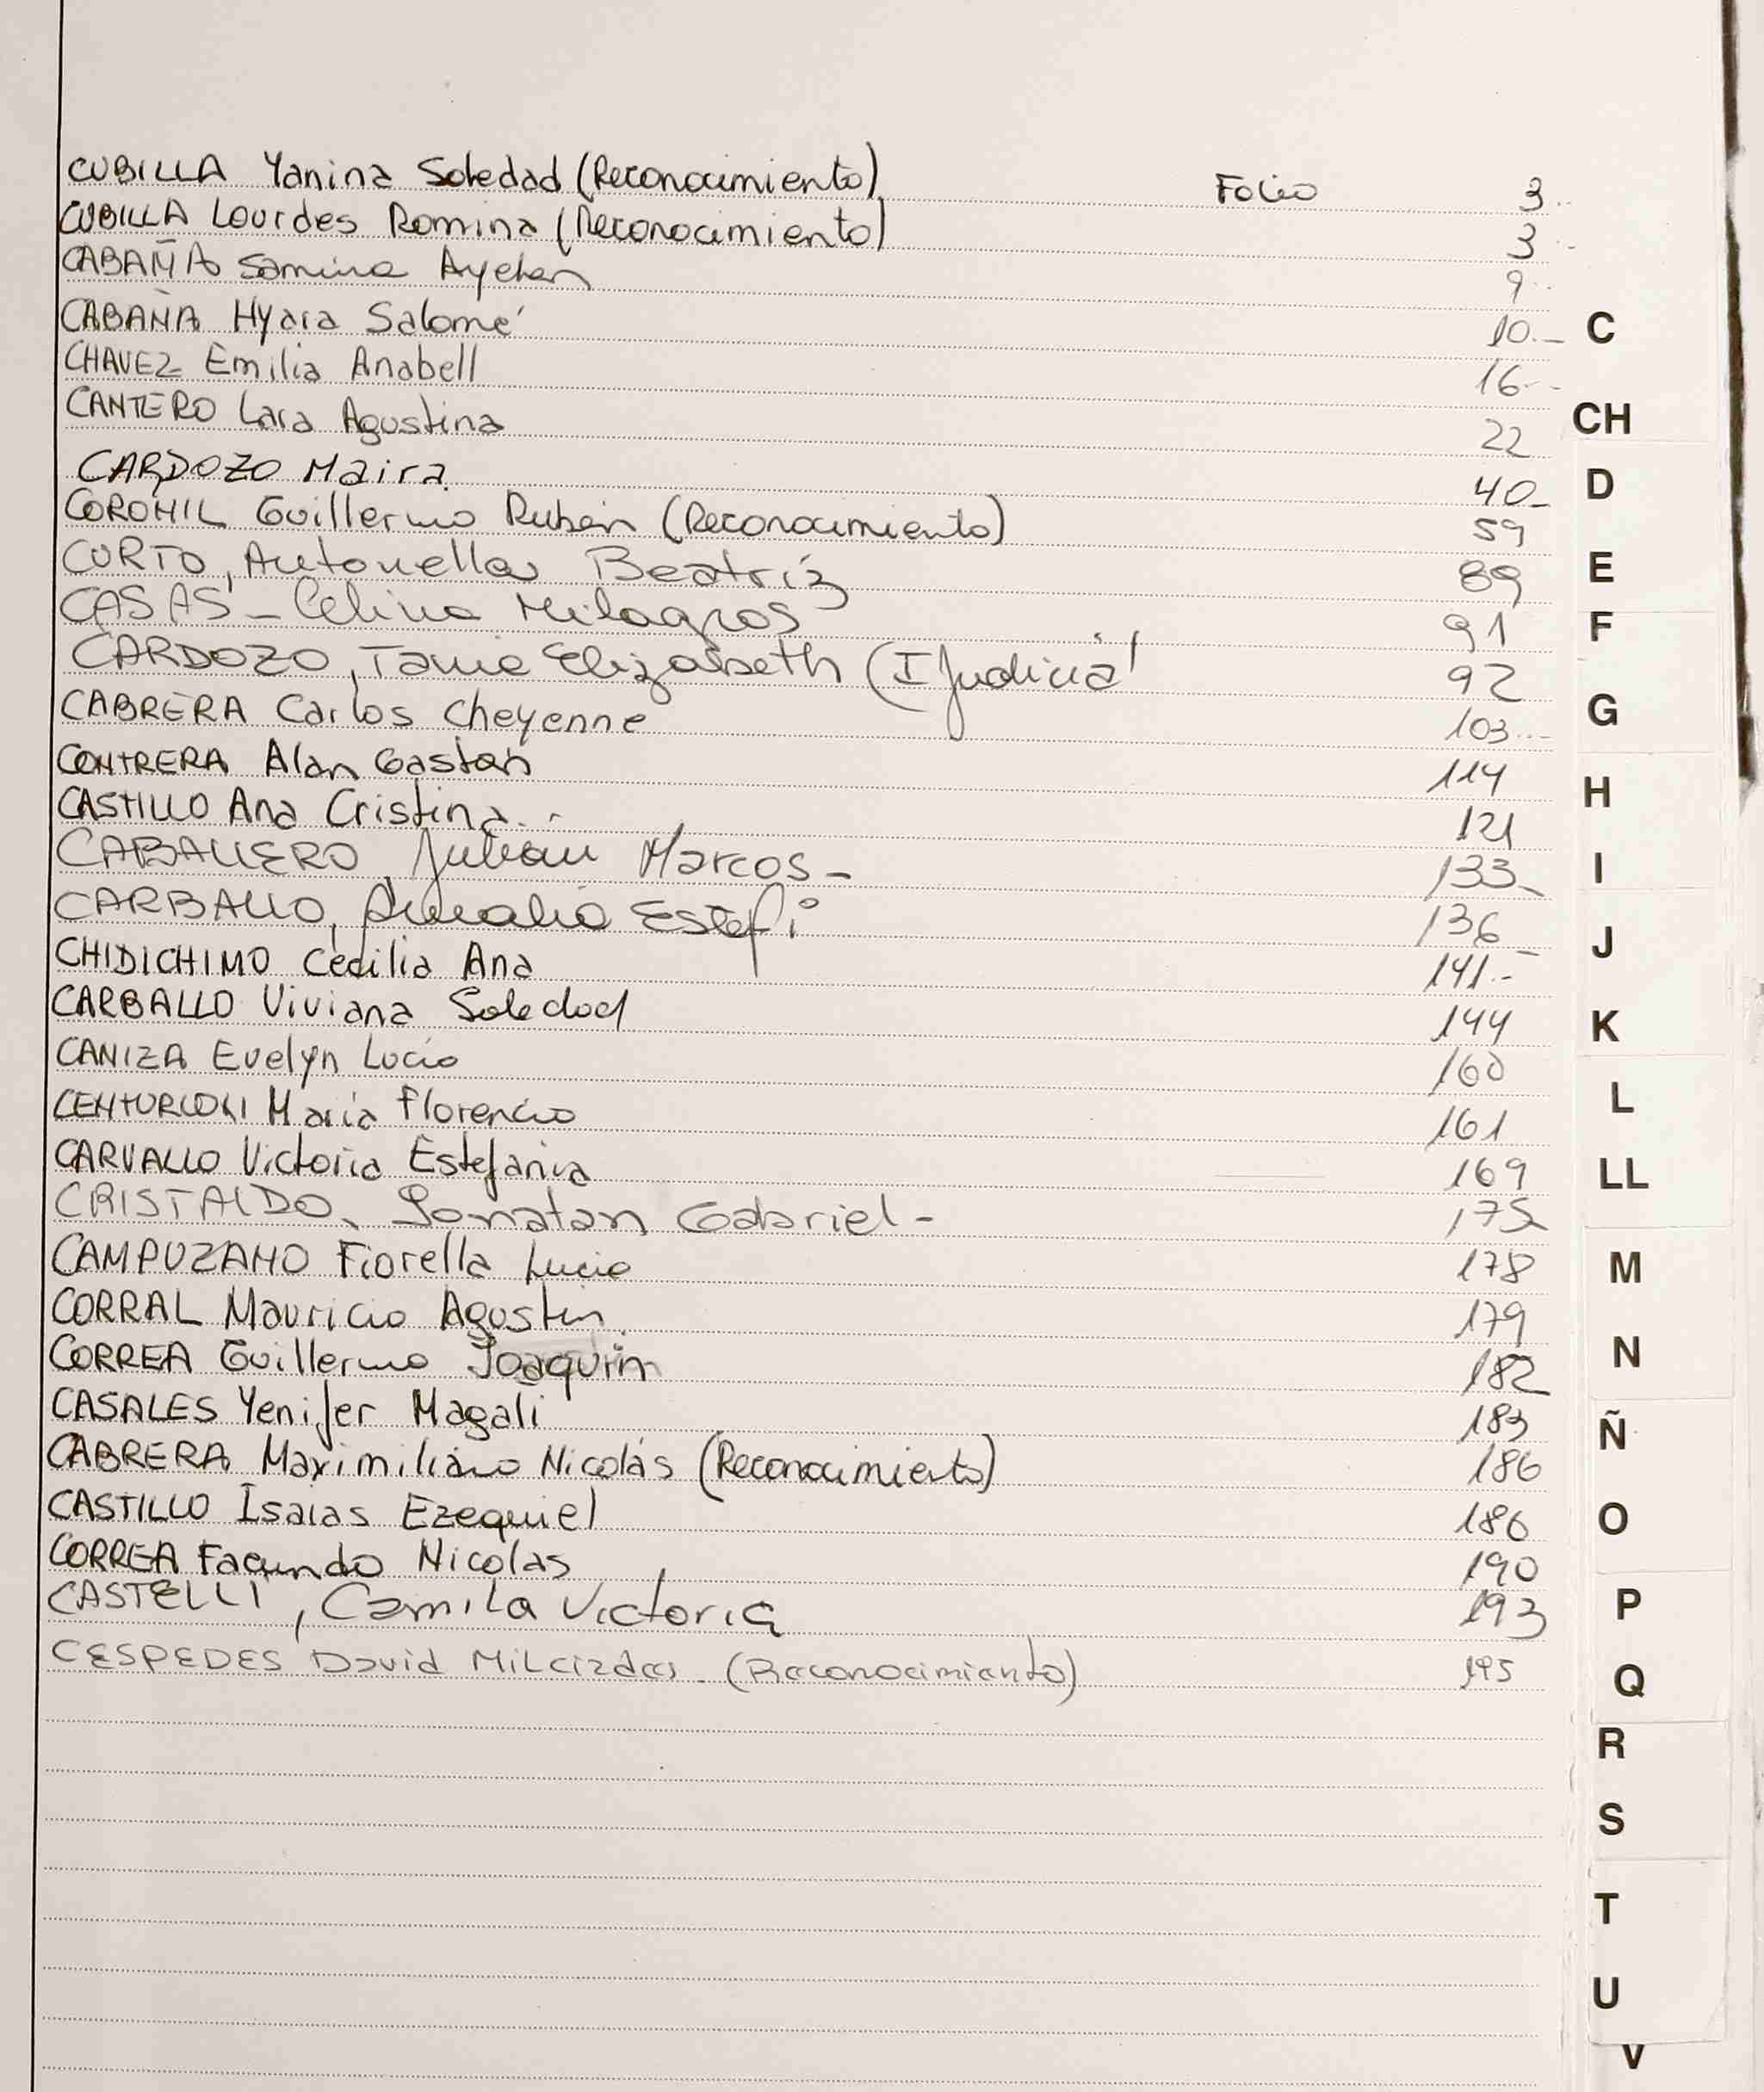 CUBILLA Yanina Soledad (Reconocimiento) Folio 3
CUBILLA Lourdes Romina (Reconocimiento) 3
CABAÑA Samira Ayelen 9
CABAÑA Hyara Salomé 10.- C
CHAVEZ Emilia Anabell 16--
CANTERO Lara Agustina 22 CH
CARDOZO Maira 40- D
COROHIL Guillermo Rubén (Reconocimiento) 59
CURTO, Antonella Beatríz 89 E
CASAS - Celina Milagros 91 F
CARDOZO, Tania Elizabeth (I Judicial 92
CABRERA Carlos Cheyenne 103-- G
CONTRERA Alan Gastón 114
CASTILLO Ana Cristina.- 121 H
CABALLERO, Julián Marcos - 133- I
CARBALLO, Amalia Estefi 136
CHIDICHIMO Cecilia Ana 141.- J
CARBALLO Viviana Soledad 144 K
CANIZA Evelyn Lucía 160
CENTURIONI María Florencia 161 L
CARVALLO Victoria Estefania 169 LL
CRISTALDO, Jonatan Gabriel - 175
CAMPUZANO Fiorella Lucia 178 M
CORRAL Mauricio Agustín. 179
CORREA Guillermo Joaquín 182 N
CASALES Yenifer Magali 183 Ñ
CABRERA Maximiliano Nicolás (Reconocimiento) 186
CASTILLO Isaias Ezequiel 186 O
CORREA Facundo Nicolas 190
CASTELLI, Camila Victoria 193 P
CESPEDES David Milciades. (Reconocimiento) 195 Q
R
S
T
U
V